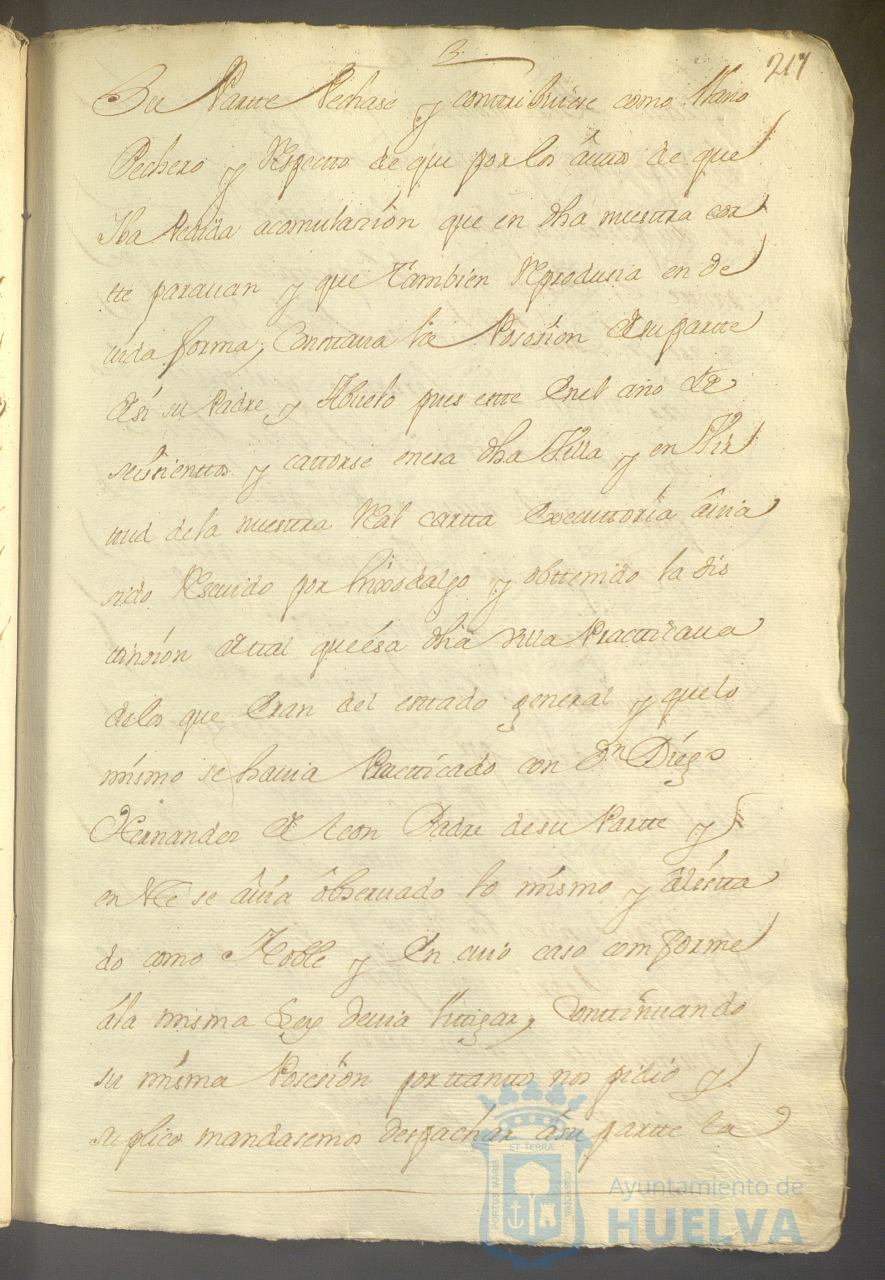 217
Su Partte Pechase y conttribuiese como llano
Pechero y Respecto de que por los autos de que
Iba Pedida acomulazión que en dha nuestra cor
tte parauan y que Tambien Reproducia en de
uida forma, Consttaua la Posesión de su partte
de si su Padre y Abuelo pues estte en el año de
seiscienttos y cattorse en esa dha Villa y en Vir
ttud de la nuestra Real cartta Executtoria auia
sido Resiuido por hixosdalgo y obttenido la dis
ttinsión de tal que esa dha Villa Practticaua
de los que Eran del esttado general y que lo
mismo se hauia Practticado con Dn Diego
Hernandes de leon Padre de su Partte y
en se auia obseruado lo mismo y alista
do como Noble y En cuio caso comforme
a la misma Ley deuia littigar, Conttinuando
su misma Posesión por tantto nos pidio y
suplico mandasemos despachar a su partte la
Ayuntamiento de
HUELVA
PORTUS MARIS
ET TERRAE
CUSTODIA